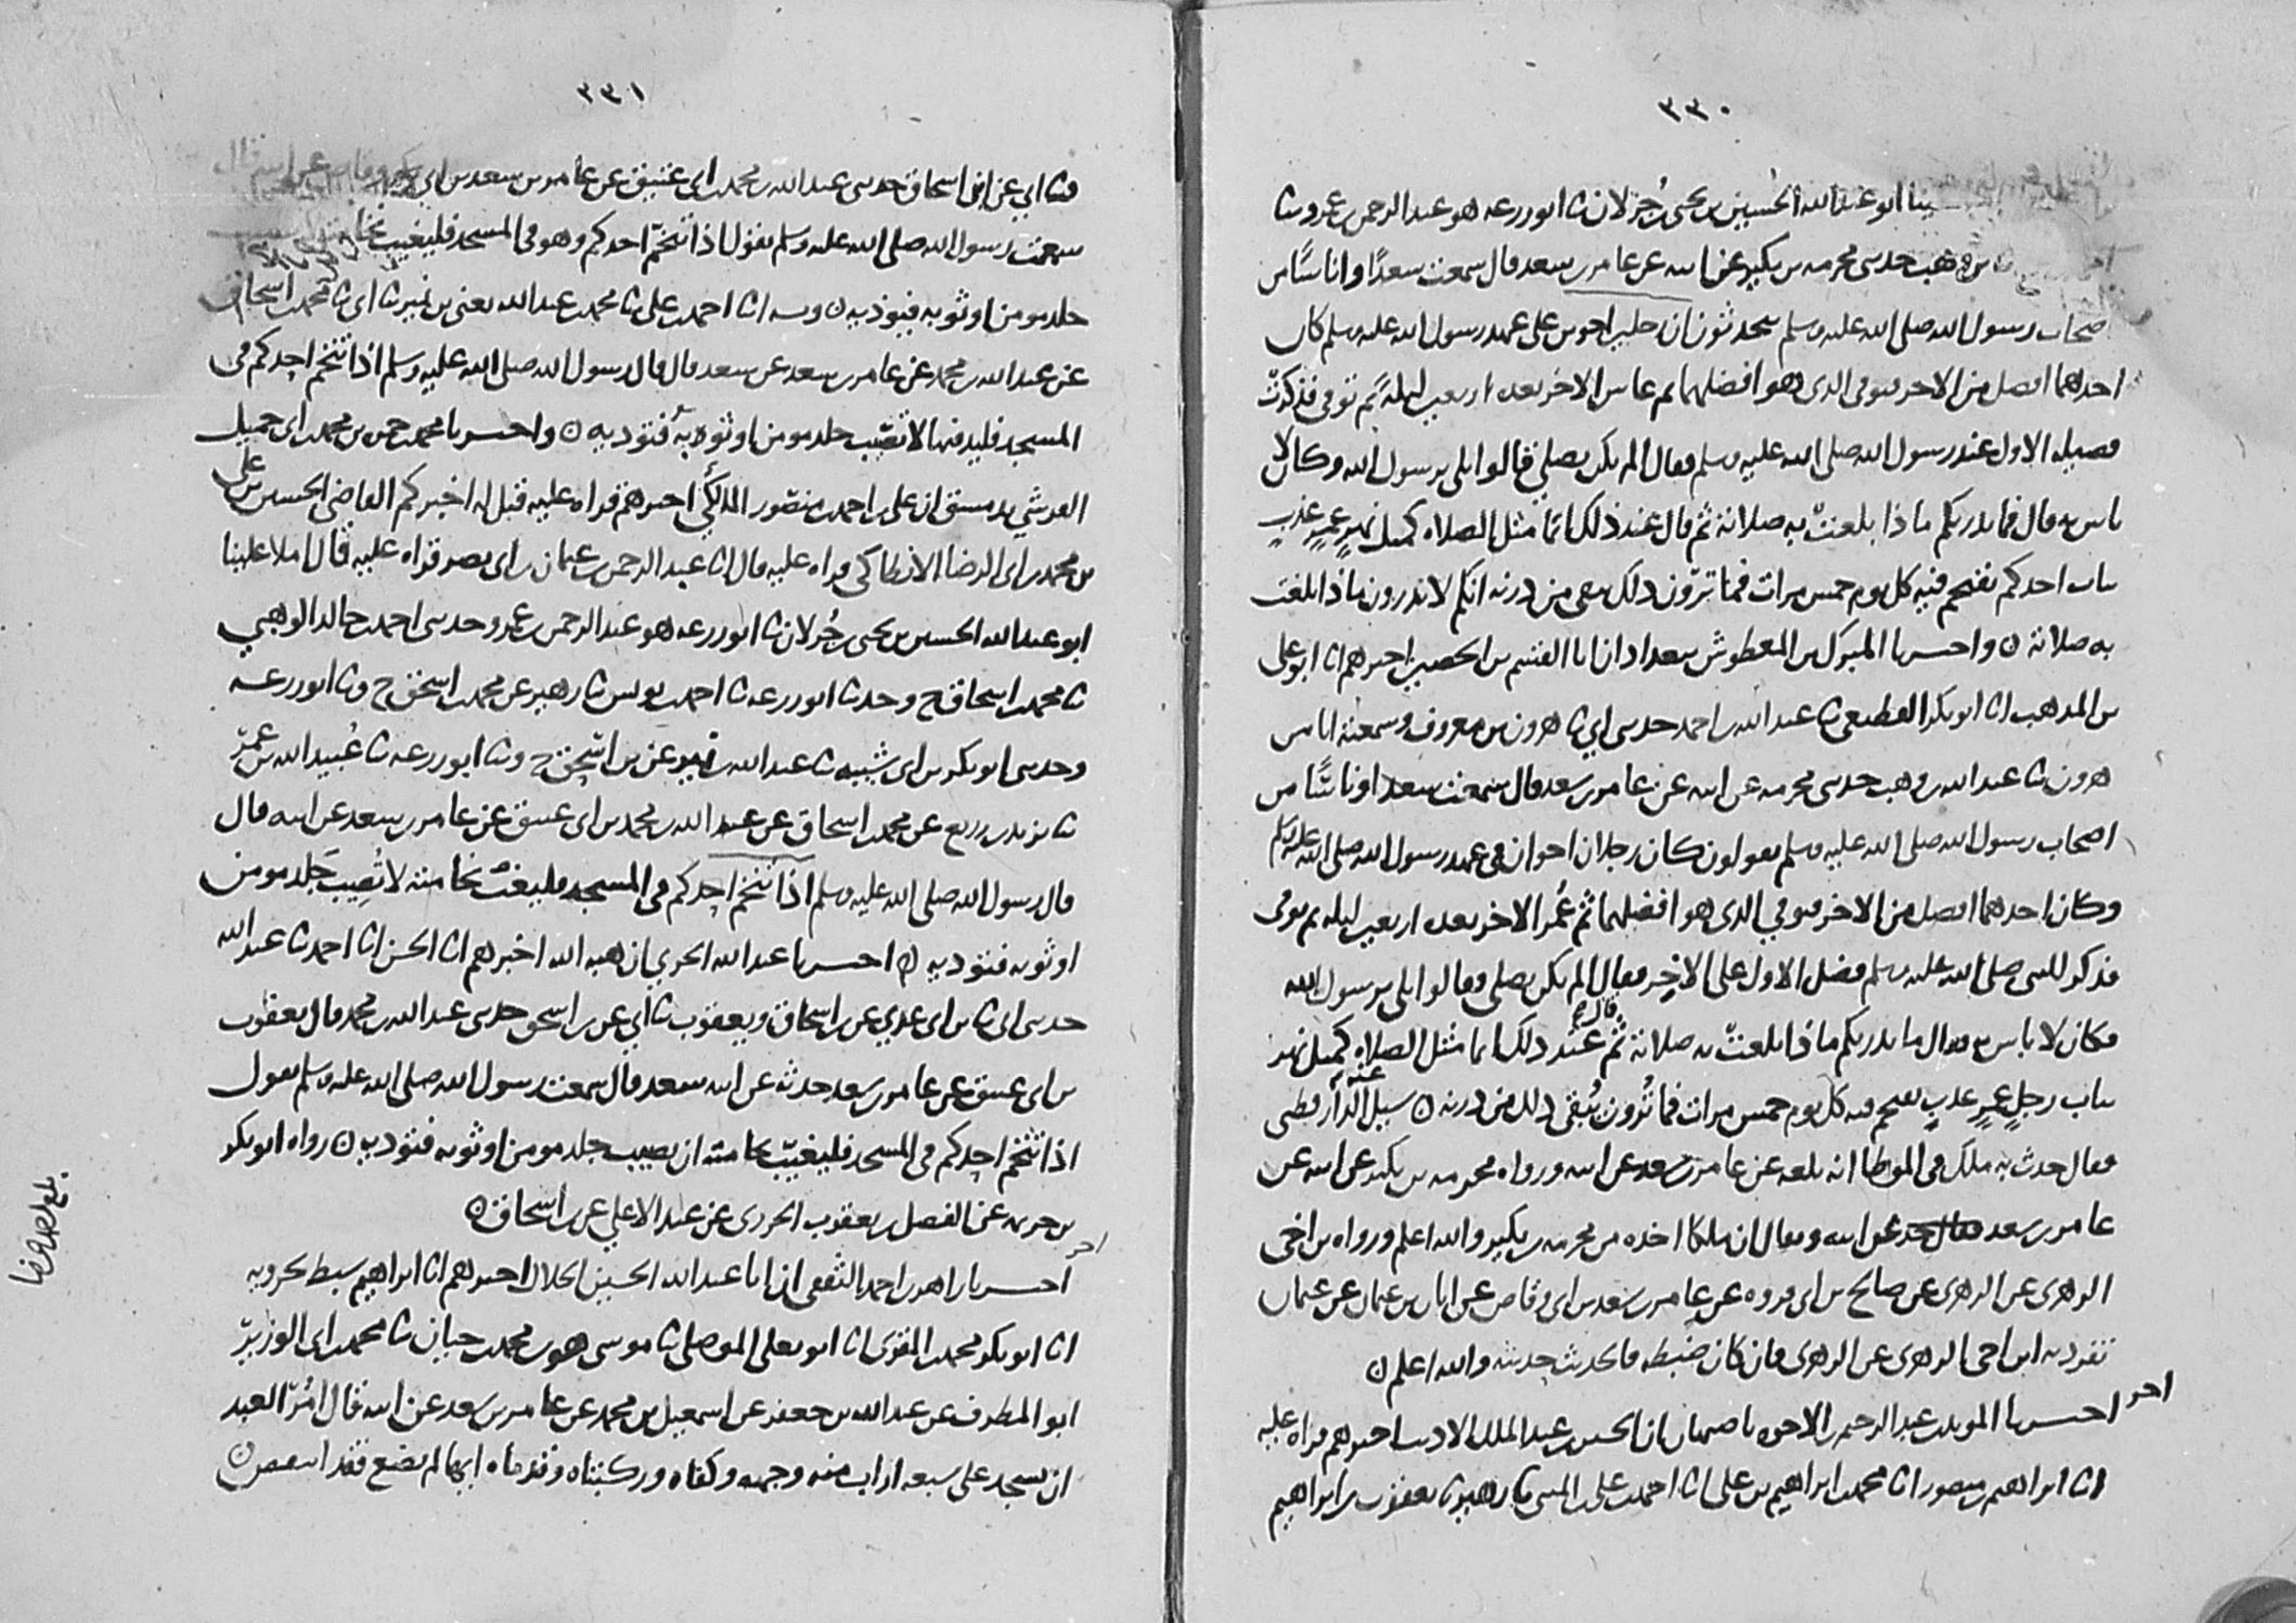 ٣٣٠
ابو عبد الله الحسين بن يحيى بن جزلان ثنا ابو زرعه هو عبد الرحمن بن عمرو ثنا
بن وهب حدثني مخرمه بن بكير عن ابيه عن عامر بن سعد قال سمعت سعدًا واناسًا من
اصحاب رسول الله صلى الله عليه وسلم يحدثون ان رجلين اخوين على عهد رسول الله صلى الله عليه وسلم كان
احدهما افضل من الاخر فتوفى الذى هو افضلهما ثم عاش الاخر بعده اربعين ليلة ثم توفى فذكرت
فضيله الاول عند رسول الله صلى الله عليه وسلم فقال الم يكن يصلي فقالوا بلى يرسول الله وكان لا
باس به قال فما يدريكم ماذا بلغت به صلاته ثم قال عند ذلك انما مثل الصلاه كمثل نهرٍ غمرٍ عذبٍ
بباب احدكم يقتحم فيه كل يوم خمس مرات فما ترون ذلك يبقى من درنه انكم لا تدرون ماذا بلغت
به صلاته ن واخبرنا المبرك بن المعطوش ببغداد ان ابا القسم بن الحصين اخبرهم انا ابو على
بن المذهب انا ابو بكر القطيعى ثنا عبد الله بن احمد حدثني ابي ثنا هرون بن معروف وسمعته انا من
هرون ثنا عبد الله بن وهب حدثني مخرمه عن ابيه عن عامر بن سعد قال سمعت سعدا وناسًا من
اصحاب رسول الله صلى الله عليه وسلم يقولون كان رجلان اخوان فى عهد رسول الله صلى الله عليه وسلم
وكان احدهما افضل من الاخر فتوفي الذى هو افضلهما ثم عُمر الاخر بعده اربعين ليله ثم توفى
فذكر للنبي صلى الله عليه وسلم فضل الاول على الاخِر فقال الم يكن يصلى فقالوا بلى يرسول الله
فكان لا باس به فقال ما يدريكم ماذا بلغت به صلاته ثم قال عند ذلك انما مثل الصلاه كمثل نهر
بباب رجلٍ غمرٍ عذبٍ يقتحم فيه كل يوم خمس مرات فما تُرون يُبقى ذلك من درنه ن سيل عنه الدارقطنى
فقال حدث به ملك فى الموطا انه بلغه عن عامر بن سعد عن ابيه ورواه مخرمه بن بكير عن ابيه عن
عامر بن سعد عن ابيه ويقال ان ملكا اخذه من مخرمه بن بكير والله اعلم ورواه بن اخى
الزهرى عن الزهرى عن صالح بن ابى فروه عن عامر بن سعد بن ابى وقاص عن ابان بن عثمان عن عثمان
تفرد به ابن اخى الزهرى عن الزهرى فان كان ضبطه فالحديث حديثه والله اعلم ن
اخر اخبرنا المويد بن عبد الرحيم بن الاخوه باصبهان ان الحسين بن عبد الملك الاديب اخبرهم قراه عليه
انا ابراهيم بن منصور انا محمد بن ابراهيم بن على انا احمد بن على بن المثنى ثنا زهير ثنا يعقوب بن ابراهيم
٣٣١
ثنا ابي عن ابن اسحاق حدثني عبد الله بن محمد بن ابى عتيق عن عامر بن سعد بن ابي وقاص عن ابيه قال
سمعت رسول الله صلى الله عليه وسلم يقول اذا تنخّم احدكم وهو فى المسجد فليغيب نخامته
جلد مومن او ثوبه فيؤذيه ن وبه انا احمد بن على ثنا محمد بن عبد الله يعنى بن نمير ثنا ابى ثنا محمد بن اسحاق
عن عبد الله بن محمد عن عامر بن سعد عن سعد قال قال رسول الله صلى الله عليه وسلم اذا تنخم احدكم فى
المسجد فليدفنها لا تصيب جلد مومن او ثوبه فتؤذيه ن واخبرنا محمد بن حمزه بن محمد بن ابى جميل
القرشي بدمشق ان على بن احمد بن منصور المالكي اخبرهم قراه عليه قيل له اخبركم القاضى الحسين بن على
بن محمد بن ابى الرضا الانطاكى قراه عليه قال انا عبد الرحمن بن عثمان بن ابى نصر قراه عليه قال املا علينا
ابو عبد الله الحسين بن يحيى بن جُزلان ثنا ابو زرعه هو عبد الرحمن بن عمرو حدثني احمد بن خالد الوهبي
ثنا محمد بن اسحاق ح وحدثنا ابو زرعه ثنا احمد بن يونس ثنا زهير عن محمد بن اسحق ح وثنا ابو زرعه
وحدثني ابو بكر بن ابى شيبه ثنا عبد الله بن نمير عن بن اسحق ح وثنا ابو زرعه ثنا عُبيد الله بن عمر
ثنا يزيد بن زريع عن محمد بن اسحاق عن عبد الله بن محمد بن ابى عتيق عن عامر بن سعد عن ابيه قال
قال رسول الله صلى الله عليه وسلم اذا تنخم احدكم فى المسجد فليغيب نخامته لا تُصيب جَلد مومن
او ثوبه فتؤذيه ن اخبرنا عبد الله الحربي ان هبه الله اخبرهم انا الحسن انا احمد ثنا عبد الله
حدثني ابى ثنا بن ابى عدي عن بن اسحاق ويعقوب ثنا أبي عن بن اسحق حدثني عبد الله بن محمد قال يعقوب
بن ابى عتيق عن عامر بن سعد حدثه عن ابيه سعد قال سمعت رسول الله صلى الله عليه وسلم يقول
اذا تنخم احدكم فى المسجد فليغيّب نخامته ان يصيب جلد مومن او ثوبه فتؤذيه ن رواه ابو بكر
بن خزيمه عن الفضل بن يعقوب الجزرى عن عبد الاعلي عن بن اسحاق ن
اخر اخبرنا زاهر بن احمد الثقفى ان ابا عبد الله الحسين الخلال اخبرهم انا ابراهيم سبط بحرويه
انا ابو بكر محمد بن المقرى انا ابو يعلى الموصلى ثنا موسى هو بن محمد بن حيان ثنا محمد بن ابى الوزير
ابو المطرف عن عبد الله بن جعفر عن اسمعيل بن محمد عن عامر بن سعد عن ابيه قال أُمر العبد
ان يسجد على سبعه اراب منه وجهه وكفاه وركبتاه وقدماه ايها لم يضع فقد انتقص ن